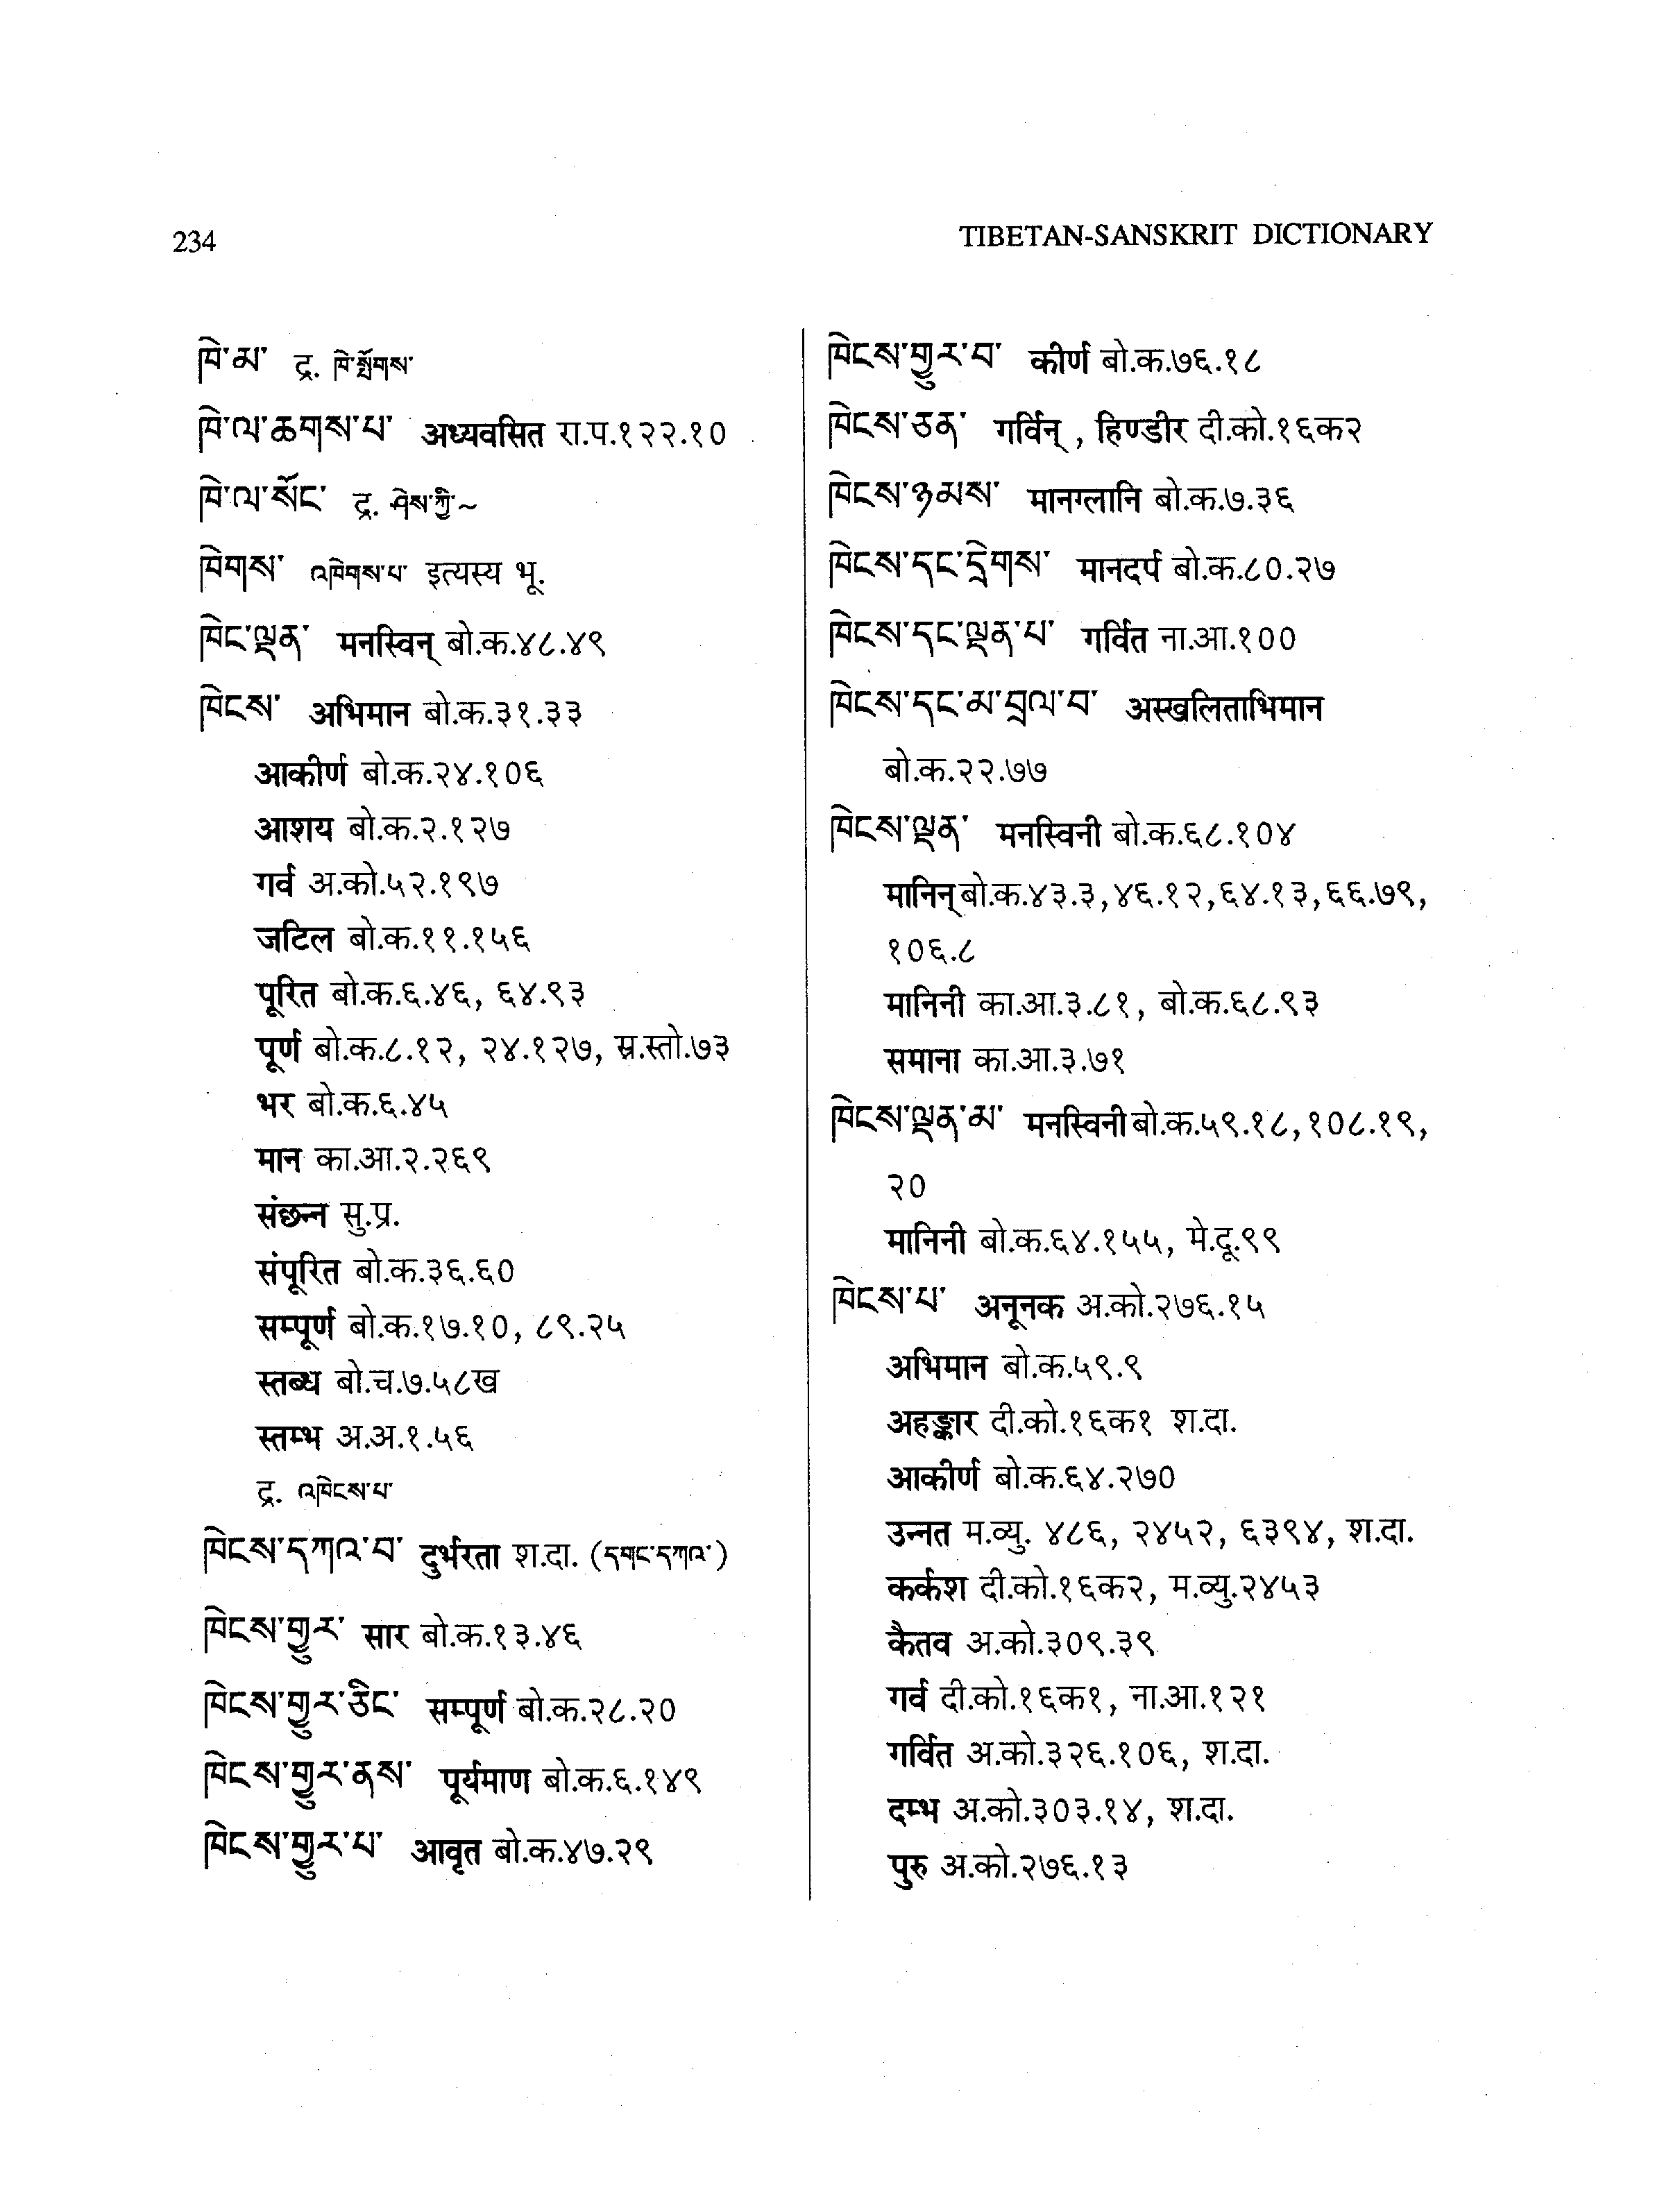 234
TIBETAN-SANSKRIT DICTIONARY
ཁེ་མ་ द्र. ཁེ་སྤོགས་
ཁེ་ལ་ཆགས་པ་ अध्यवसित रा.प.१२२.१०
ཁེ་ལ་སོང་ द्र. ཤེས་ཀྱི་~
ཁེགས་ འཁེགས་པ་ इत्यस्य भू.
ཁེང་ལྡན་ मनस्विन् बो.क.४८.४९
ཁེངས་ अभिमान बो.क.३१.३३
आकीर्ण बो.क.२४.१०६
आशय बो.क.२.१२७
गर्व अ.को.५२.१९७
जटिल बो.क.११.१५६
पूरित बो.क.६.४६, ६४.९३
पूर्ण बो.क.८.१२, २४.१२७, स्र.स्तो.७३
भर बो.क.६.४५
मान का.आ.२.२६९
संछन्न सु.प्र.
संपूरित बो.क.३६.६०
सम्पूर्ण बो.क.१७.१०, ८९.२५
स्तब्ध बो.च.७.५८ख
स्तम्भ अ.अ.१.५६
द्र. འཁེངས་པ་
ཁེངས་དཀའ་བ་ दुर्भरता श.दा. (དགང་དཀའ་)
ཁེངས་གྱུར་ सार बो.क.१३.४६
ཁེངས་གྱུར་ཅིང་ सम्पूर्ण बो.क.२८.२०
ཁེངས་གྱུར་ནས་ पूर्यमाण बो.क.६.१४९
ཁེངས་གྱུར་པ་ आवृत बो.क.४७.२९
ཁེངས་གྱུར་བ་ कीर्ण बो.क.७६.१८
ཁེངས་ཅན་ गर्विन् , हिण्डीर दी.को.१६क२
ཁེངས་ཉམས་ मानग्लानि बो.क.७.३६
ཁེངས་དང་དྲེགས་ मानदर्प बो.क.८०.२७
ཁེངས་དང་ལྡན་པ་ गर्वित ना.आ.१००
ཁེངས་དང་མ་བྲལ་བ་ अस्खलिताभिमान
बो.क.२२.७७
ཁེངས་ལྡན་ मनस्विनी बो.क.६८.१०४
मानिन् बो.क.४३.३,४६.१२,६४.१३,६६.७९,
१०६.८
मानिनी का.आ.३.८१, बो.क.६८.९३
समाना का.आ.३.७१
ཁེངས་ལྡན་མ་ मनस्विनी बो.क.५९.१८,१०८.१९,
२०
मानिनी बो.क.६४.१५५, मे.दू.९९
ཁེངས་པ་ अनूनक अ.को.२७६.१५
अभिमान बो.क.५९.९
अहङ्कार दी.को.१६क१ श.दा.
आकीर्ण बो.क.६४.२७०
उन्नत म.व्यु. ४८६, २४५२, ६३९४, श.दा.
कर्कश दी.को.१६क२, म.व्यु.२४५३
कैतव अ.को.३०९.३९
गर्व दी.को.१६क१, ना.आ.१२१
गर्वित अ.को.३२६.१०६, श.दा.
दम्भ अ.को.३०३.१४, श.दा.
पुरु अ.को.२७६.१३